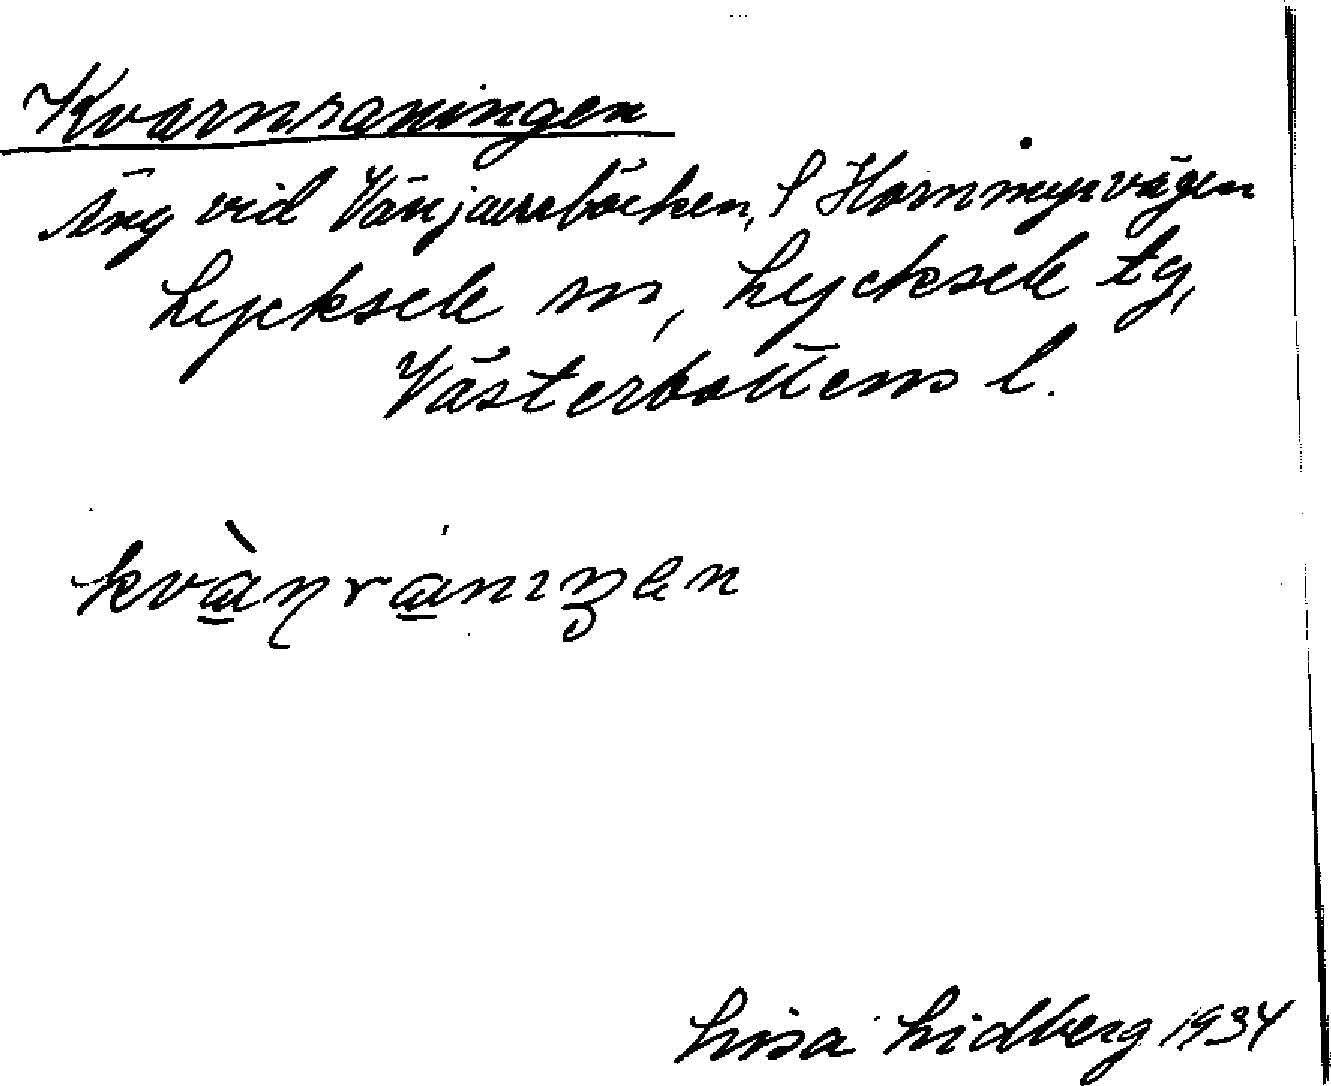 Kvarnraningen
Äng vid Vänjaurbäcken, f Hornmyrvägen
Lycksele sn, Lycksele tg,
Västerbottens l.
kvàɳránıŋen
Lisa Lidberg 1934